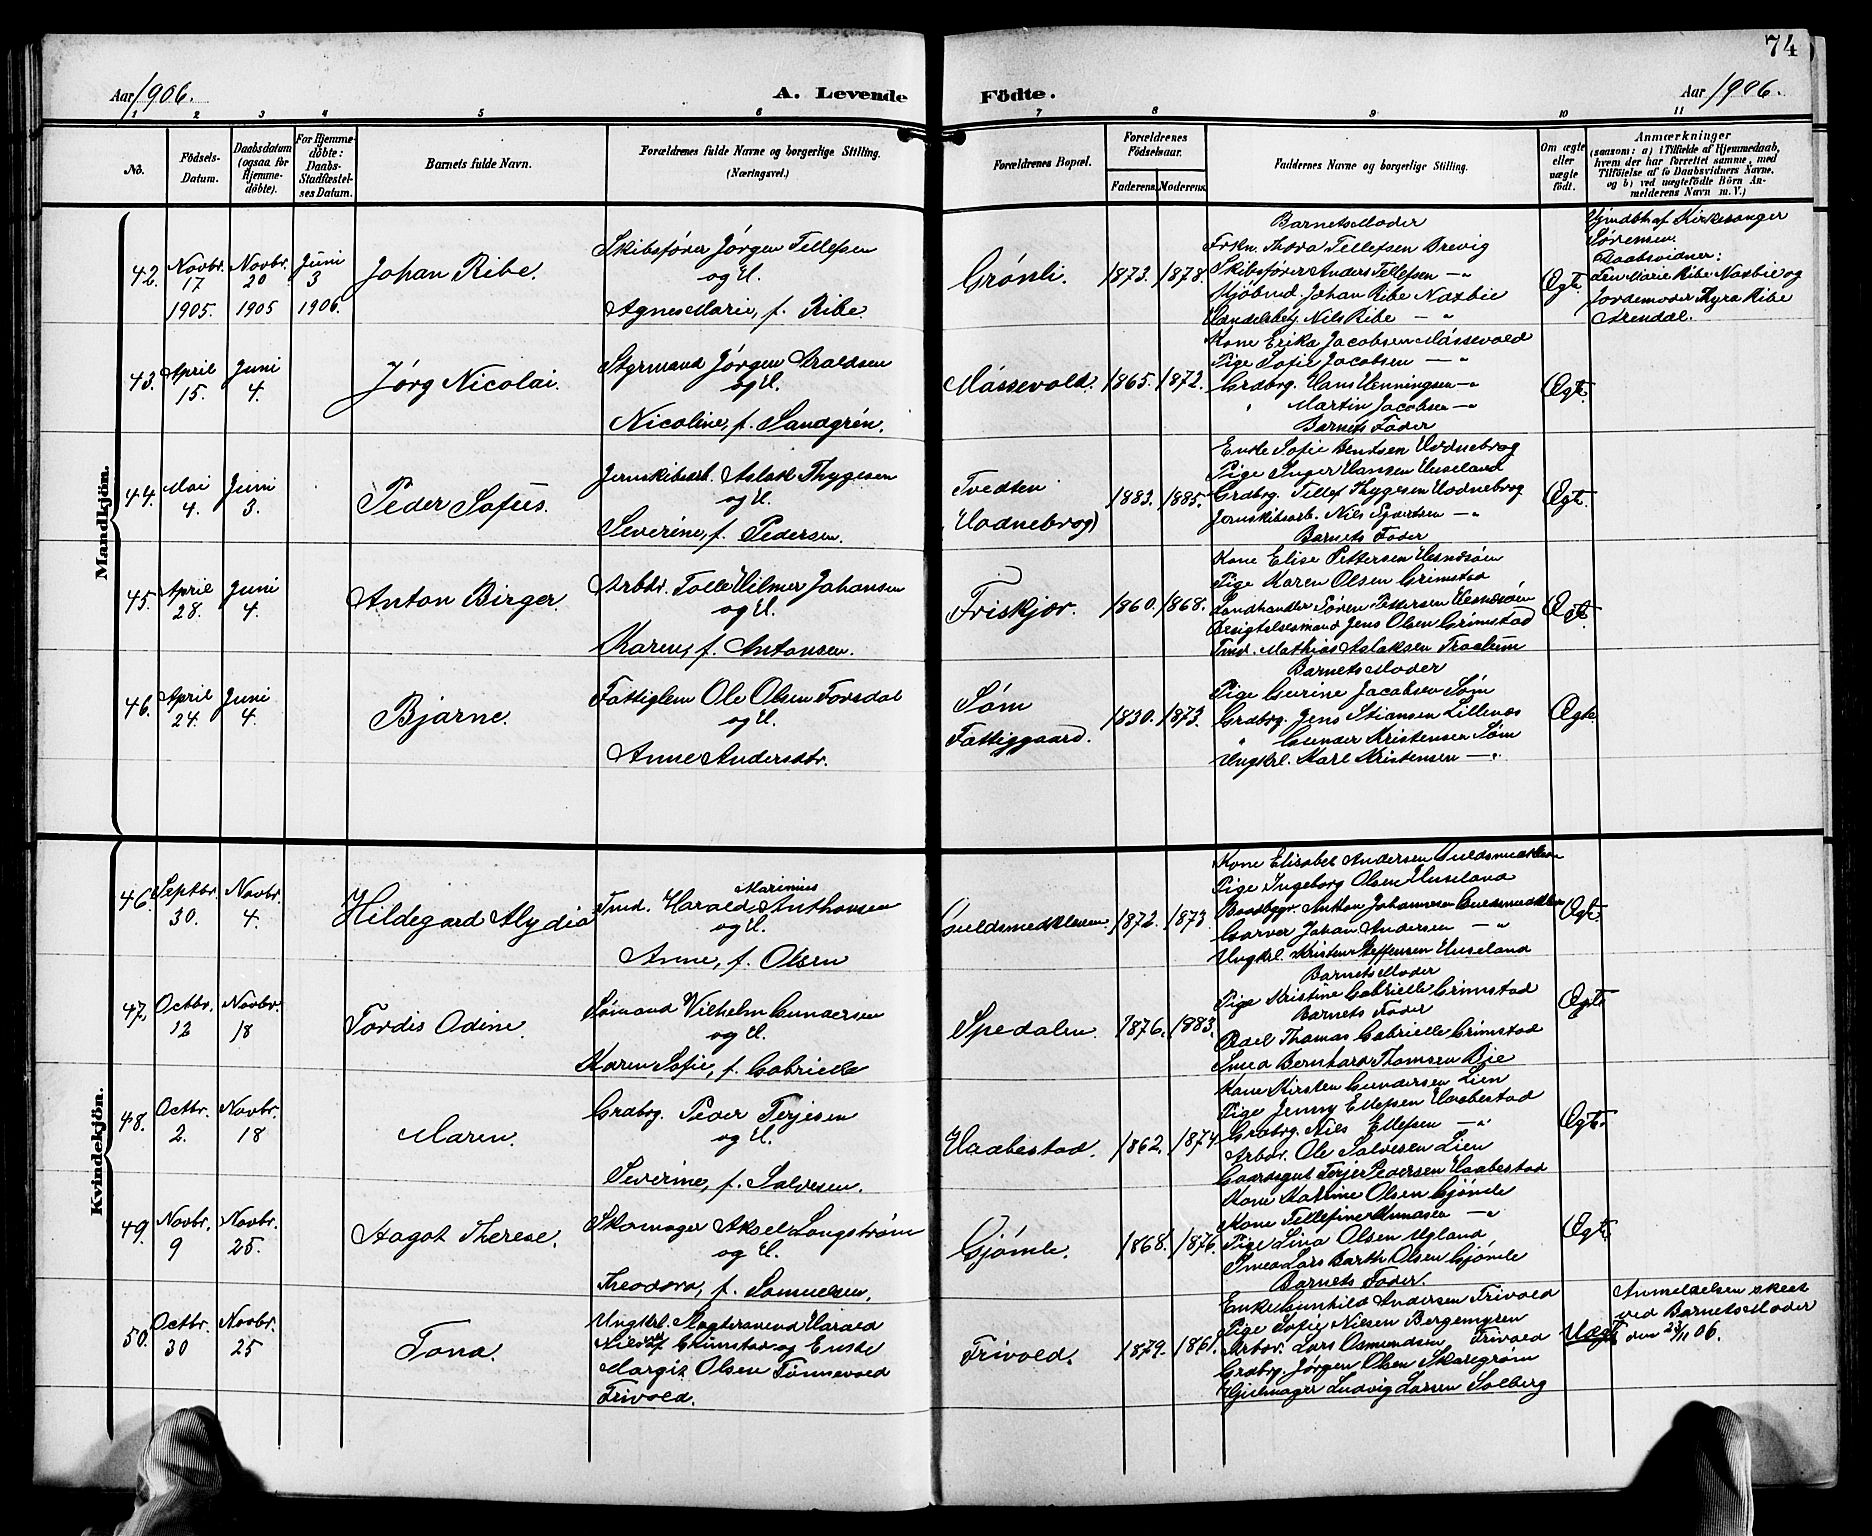 74
Aar 1906.
A. Levende Födte.
Aar 1906.
1 2 3 4 5 6 7 8 9 10 11
No.
Födsels-Datum.
Daabsdatum (ogsaa for Hjemme-döbte).
For Hjemme-döbte: Daabs-Stadfæstel-ses Datum.
Barnets fulde Navn.
Forældrenes fulde Navne og borgerlige Stilling. (Næringsvei.)
Forældrenes Bopæl.
Forældrenes Födselsaar.
Faderens. Moderens.
Faddernes Navne og borgerlige Stilling.
Om ægte eller uægte født.
Anmærkninger
(saasom: a) i Tilfælde af Hjemmedaab,
hvem der har forrettet samme, med
Tilföielse af to Daabsvidners Navne,
og b) ved uægtefödte Börn An-
melderens Navn m. V.)
Mandkjön.
42. Novbr. 17 1905. Novbr. 20 1905 Juni 3 1906.
Johan Ribe.
Skibsfører Jørgen Tellefsen
og H.
Agnes Marie, f. Ribe.
Grønli. 1873. 1878.
Barnets Moder
Frkn. Thora Tellefsen Brevig
Skibsfører Anders Tellefsen — "
Kjøbmd. Johan Ribe Naxbie
Handelsbetj. Nils Ribe — "
Ægt.
Hjmdbt. af Kirkesanger
Sørensen.
Daabsvidner:
Marie Ribe Naxbie og
Jordemoder Thyra Ribe
Arendal.
43. April 15. Juni 4.
Jørg Nicolai.
Styrmand Jørgen Araldsen
og H.
Nicoline, f. Sandgrén.
Måssevold. 1865. 1872.
Kone Erika Jacobsen Måssevold
Pige Sofie Jacobsen — "
Grdbrg. Hans Henningsen — "
" Martin Jacobsen — "
Barnets Fader
Ægt.
44. Mai 4. Juni 3.
Peder Sofus.
Jernskibsarb. Aslak Thygesen
og H.
Severine, f. Pedersen.
Tvedten
(Hodnebrog) 1883. 1885.
Enke Sofie Bentsen Hodnebrog
Pige Inger Hansen Huseland
Grdbrg. Tellef Thygesen Hodnebrog
Jernskibsarb. Nils — "
Barnets Fader
Ægt.
45. April 28. Juni 4.
Anton Birger.
Arbdr. Tolle Hilmer Johansen
og H.
Karen, f. Antonsen.
Friskjær. 1860. 1868.
Kone Elise Pettersen Hesnesøen
Pige Karen Olsen Grimstad
Landhandler Søren Pettersen Hesnesøen
Besigtelsesmand Jens Olsen Grimstad
Tmd. Mathias Aslaksen Trolum
Ægt.
46. April 24. Juni 4.
Bjarne.
Fattiglem Ole Olsen Forsdal
og H.
Anne Andersdtr.
Søm
Fattiggaard. 1830. 1873.
Barnets Moder
Pige Gurine Jacobsen Søm
Grdbrg. Jens Stiansen Lillenes
" Gunder Kristensen Søm
Ungkrl. Karl Kristensen — "
Ægte
Kvindekjön.
46. Septbr. 30. Novbr. 4.
Hildegard Alydia
Marinius
Tmd. Harald Anthonsen
og H.
Anne, f. Olsen
Guldsmedkleven. 1872. 1873.
Kone Elisabet Andersen Guldsmedkleven
Pige Ingeborg Olsen Huseland
Baadbygr. Anthon Johannesen Guldsmedkleven
Garver Johan Andersen — "
Ungkrl. Kristen Steffensen Huseland
Ægt.
47. Octbr. 12 Novbr. 18
Tordis Odine.
Sømand Vilhelm Gundersen
og H.
Karen Sofie, f. Gabrielle
Spedalen. 1876. 1883.
Barnets Moder
Pige Kristine Gabrielle Grimstad
Barnets Fader
Thomas Gabrielle Grimstad
Smed Bernhard Thomsen Bie
Ægt.
48. Octbr. 2. Novbr. 18
Maren.
Grdbrg. Peder Terjesen
og H.
Severine, f. Salvesen.
Haabestad. 1862. 1874.
Kone Kirsten Gundersen Lien
Pige Jenny Ellefsen Haabestad
Grdbrg. Nils Ellefsen — "
Arbdr. Ole Salvesen Lien
Gaardsgut Terjer Pedersen Haabestad
Ægt.
49. Novbr. 9 Novbr. 25.
Aagot Therese.
Skomager Aksel Langstrøm
og H.
Theodora, f. Samuelsen.
Gjømle. 1868. 1876.
Kone Katrine Olsen Gjømle
Kone Tellefine Knudsen — "
Pige Lina Olsen Ugland
Smed Lars Barth Olsen Gjømle
Barnets Fader
Ægt.
50. Octbr. 30 Novbr. 25
Tona.
Ungkrl. Slagtersvend Harald
Nielsen af Grimstad og Enke
Margit Olsen Tønnevold
Frivold.
Frivold. 1879. 1861.
Enke Gunhild Andersen Frivold
Pige Sofie Nielsen Bergemyren
Arbdr. Lars Osmundsen Frivold
Grdbrg. Jørgen Olsen Skaregrøm
Hjulmager Ludvig Larsen Solberg
Uægt.
Anmeldelsen skeet
ved Barnets Moder
den 23/11 06.